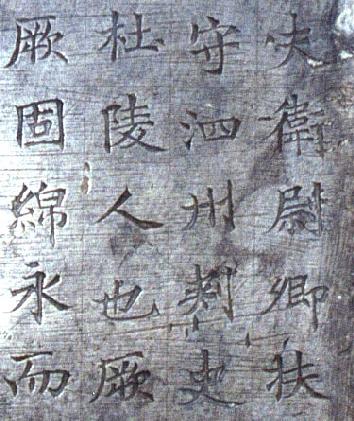 夫衛尉卿扶
守泗州刺史
杜陵人也厥
厥固綿永而